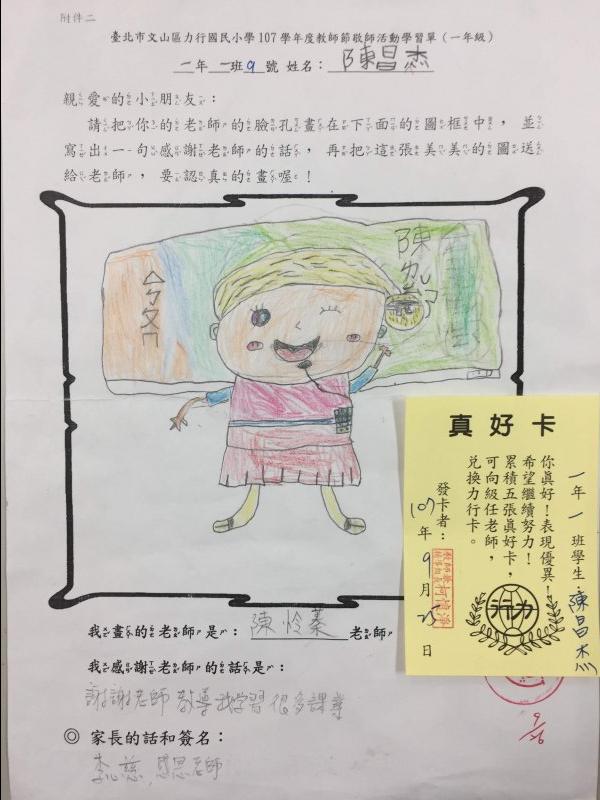 附件二
臺北市文山區力行國民小學107學年度教師節敬師活動學習單（一年級）
一年一班9號 姓名：陳昌杰
親愛的小朋友：
請把你的老師的臉孔畫在下面的圖框中，並
寫出一句感謝老師的話，再把這張美美的圖送
給老師，要認真的畫喔！
陳
ㄅㄆㄇ
真好卡
一年一班學生：陳昌杰
你真好！表現優異！
希望繼續努力！
累積五張真好卡，
可向級任老師，
兌換力行卡。
發卡者：
107年9月25日
力行
我畫的老師是：陳怜蓁老師
我感謝老師的話是：
謝謝老師教導我學習很多課業
◎ 家長的話和簽名：
李心慈 感恩老師
9/26